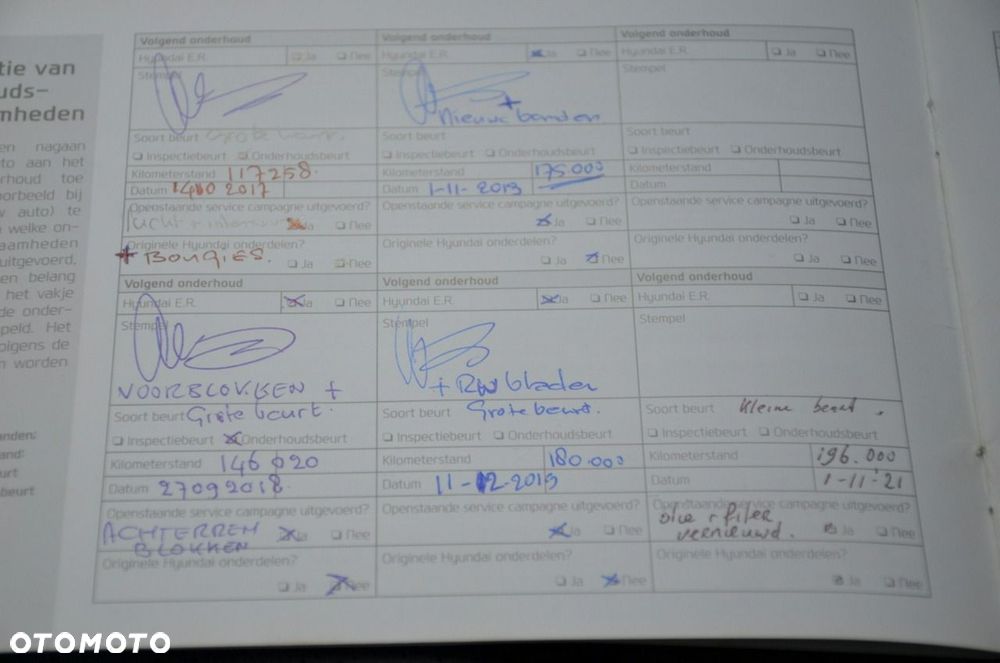 tie van
uds-
mheden
en nagaan
to aan het
rhoud toe
oorbeeld bij
w auto) te
welke on-
aamheden
uitgevoerd,
en belang
het vakje
de onder-
peld. Het
olgens de
n worden
anden:
and:
urt
beurt
Volgend onderhoud
Hyundai E.R. Ja Nee
Stempel
Soort beurt Grote beurt.
Inspectiebeurt Onderhoudsbeurt
Kilometerstand 117258.
Datum 2017
Openstaande service campagne uitgevoerd?
lucht + Ja Nee
Originele Hyundai onderdelen?
+ BOUGIES. Ja Nee
Volgend onderhoud
Hyundai E.R. Ja Nee
Stempel
+
Nieuwe banden
Soort beurt
Inspectiebeurt Onderhoudsbeurt
Kilometerstand 175.000
Datum 1-11-2019
Openstaande service campagne uitgevoerd?
Ja Nee
Originele Hyundai onderdelen?
Ja Nee
Volgend onderhoud
Hyundai E.R. Ja Nee
Stempel
Soort beurt
Inspectiebeurt Onderhoudsbeurt
Kilometerstand
Datum
Openstaande service campagne uitgevoerd?
Ja Nee
Originele Hyundai onderdelen?
Ja Nee
Volgend onderhoud
Hyundai E.R. Ja Nee
Stempel
VOORBLOKKEN +
Soort beurt Grote beurt.
Inspectiebeurt Onderhoudsbeurt
Kilometerstand 146020
Datum 27092018.
Openstaande service campagne uitgevoerd?
ACHTERREM Ja Nee
BLOKKEN
Originele Hyundai onderdelen?
Ja Nee
Volgend onderhoud
Hyundai E.R. Ja Nee
Stempel
+ RW bladen
Soort beurt Grote beurt.
Inspectiebeurt Onderhoudsbeurt
Kilometerstand 180.000
Datum 11-12-2019
Openstaande service campagne uitgevoerd?
Ja Nee
Originele Hyundai onderdelen?
Ja Nee
Volgend onderhoud
Hyundai E.R. Ja Nee
Stempel
Soort beurt Kleine beurt.
Inspectiebeurt Onderhoudsbeurt
Kilometerstand 196.000
Datum 1-11-21
Openstaande service campagne uitgevoerd?
olie + filter
vernieuwd. Ja Nee
Originele Hyundai onderdelen?
Ja Nee
OTOMOTO